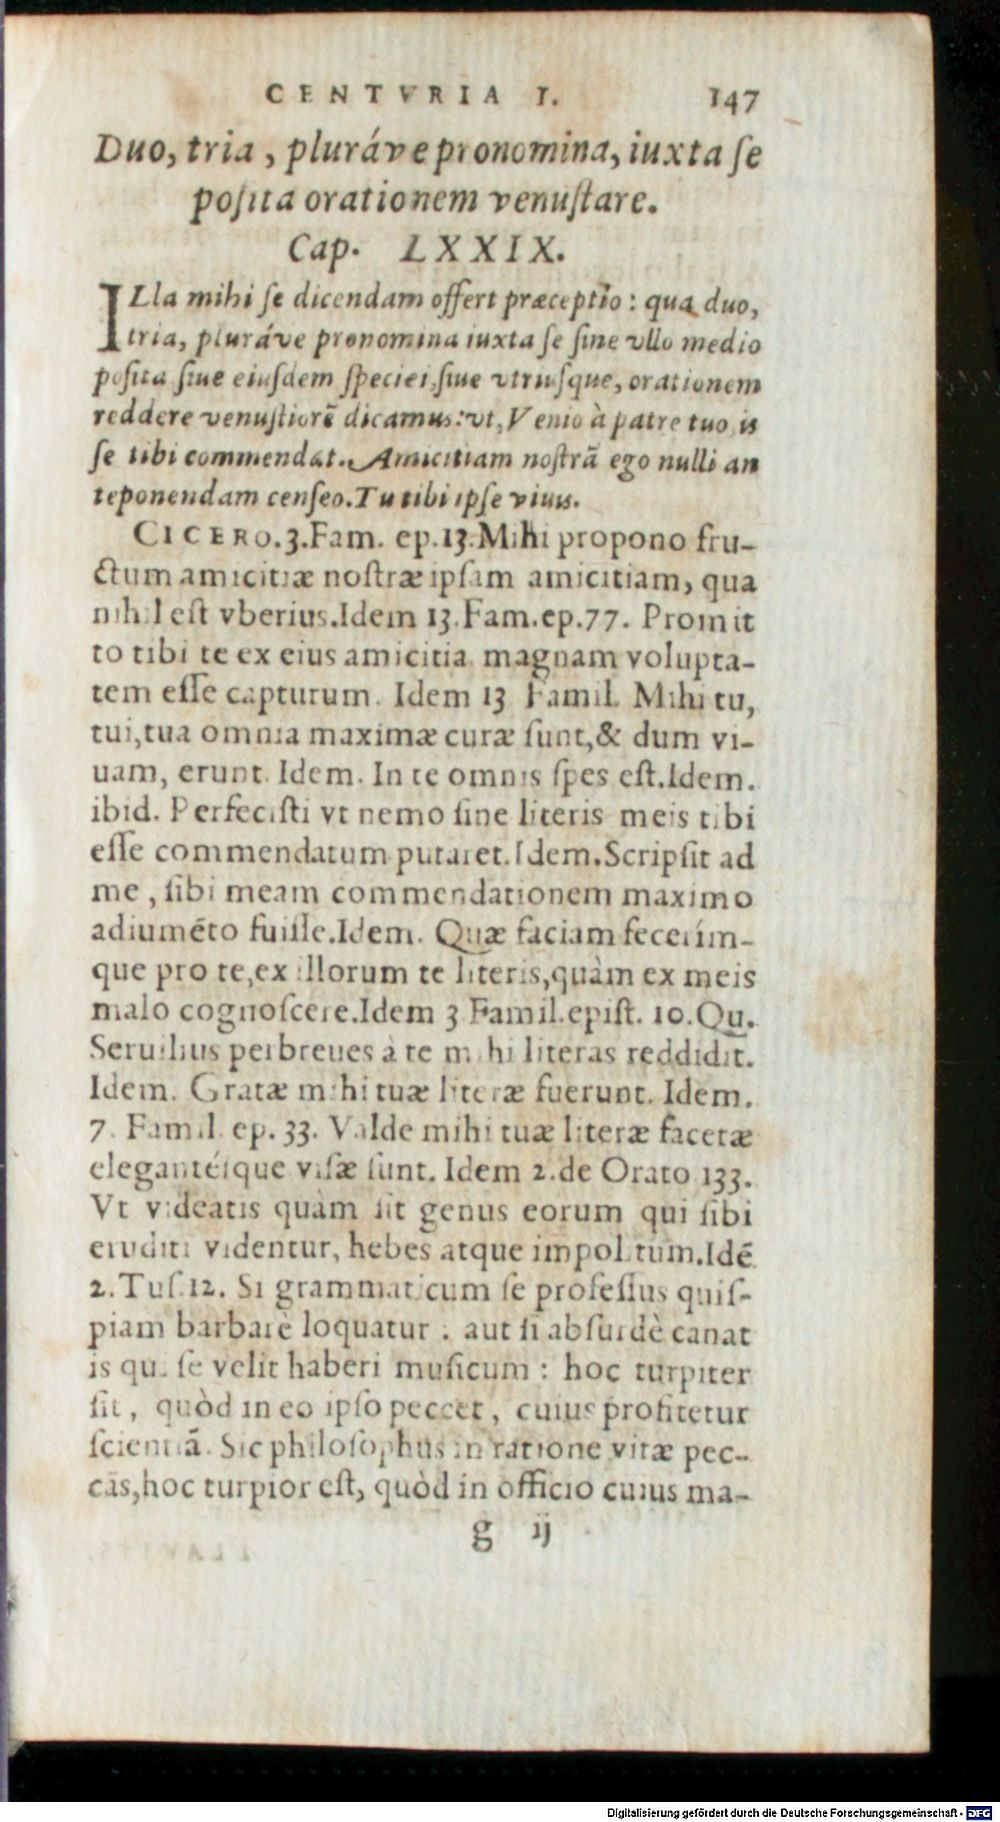 CENTVRIA I. 147
Duo, tria, pluráve pronomina, iuxta ſe
poſita orationem venuſtare.
Cap. LXXIX.
ILla mihi ſe dicendam offert præceptio: qua duo,
tria, pluráve pronomina iuxta ſe ſine vllo medio
poſita ſiue eiuſdem ſpeciei, ſiue vtriuſque, orationem
reddere venuſtiorē dicamus: vt, Venio à patre tuo is
ſe tibi commendat. Amicitiam noſtrā ego nulli an
teponendam cenſeo. Tu tibi ipſe viuis.
CICERO. 3. Fam. ep. 13. Mihi propono fru-
ctum amicitiæ noſtræ ipſam amicitiam, qua
nihil eſt vberius. Idem 13. Fam. ep. 77. Promit
to tibi te ex eius amicitia magnam volupta-
tem eſſe capturum. Idem 13 Famil. Mihi tu,
tui, tua omnia maximæ curæ ſunt, & dum vi-
uam, erunt. Idem. In te omnis ſpes eſt. Idem.
ibid. Perfeciſti vt nemo ſine literis meis tibi
eſſe commendatum putaret. Idem. Scripſit ad
me, ſibi meam commendationem maximo
adiumēto fuiſſe. Idem. Quæ faciam fecerím-
que pro te, ex illorum te literis, quàm ex meis
malo cognoſcere. Idem 3 Famil. epiſt. 10. Qu.
Seruilius perbreues à te mihi literas reddidit.
Idem. Gratæ mihi tuæ literæ fuerunt. Idem.
7. Famil. ep. 33. Valde mihi tuæ literæ facetæ
elegantéſque viſæ ſunt. Idem 2. de Orato 133.
Vt videatis quàm ſit genus eorum qui ſibi
eruditi videntur, hebes atque impolitum. Idē
2. Tuſ. 12. Si grammaticum ſe profeſſus quiſ-
piam barbarè loquatur: aut ſi abſurdè canat
is qui ſe velit haberi muſicum: hoc turpiter
ſit, quòd in eo ipſo peccet, cuius profitetur
ſcientiā. Sic philoſophus in ratione vitæ pec-
cās, hoc turpior eſt, quòd in officio cuius ma-
g ij
Digitalisierung gefördert durch die Deutsche Forschungsgemeinschaft - DFG